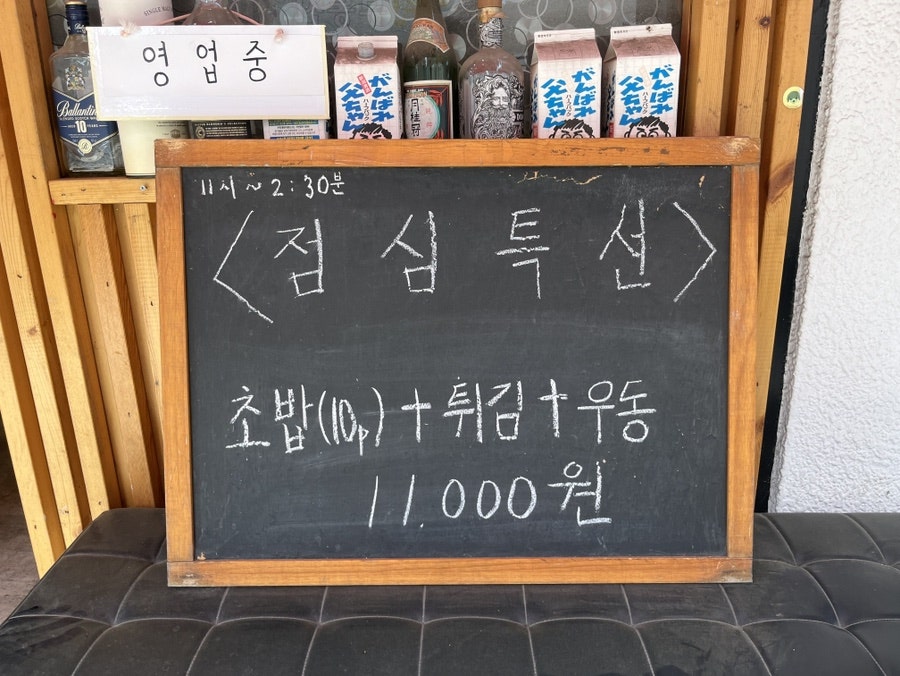 영업중
SINGLE
Ballantine's
10
YEARS
がんばれ
父ちゃん
月桂冠
がんばれ
父ちゃん
がんばれ
父ちゃん
11시~2:30분
<점심특선>
초밥(10p)+튀김+우동
11.000원